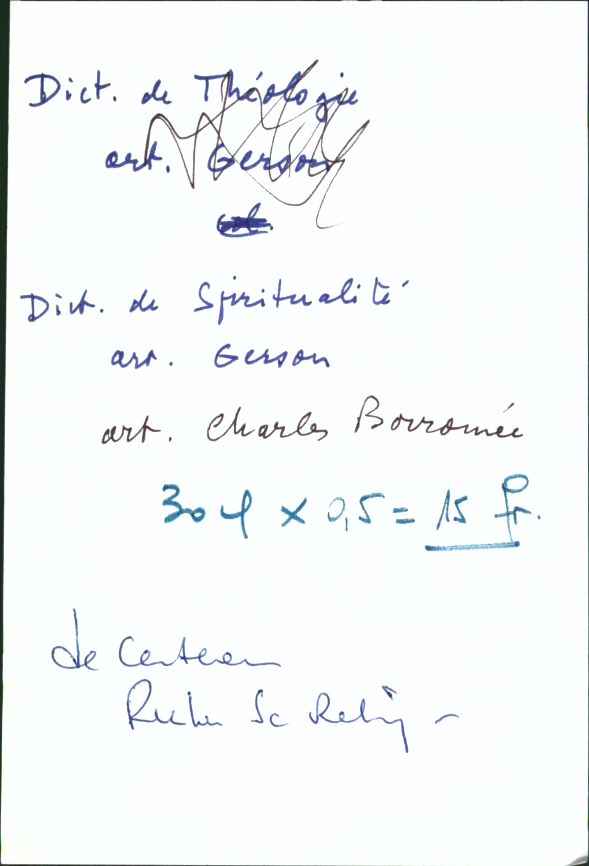 Dict. de Théologie
art. Gerson
Dict. de Spiritualité
art. Gerson
art. Charles Borromée
30 × 0,5 = 15 fr.
de Certeau
Rech Sc Relig